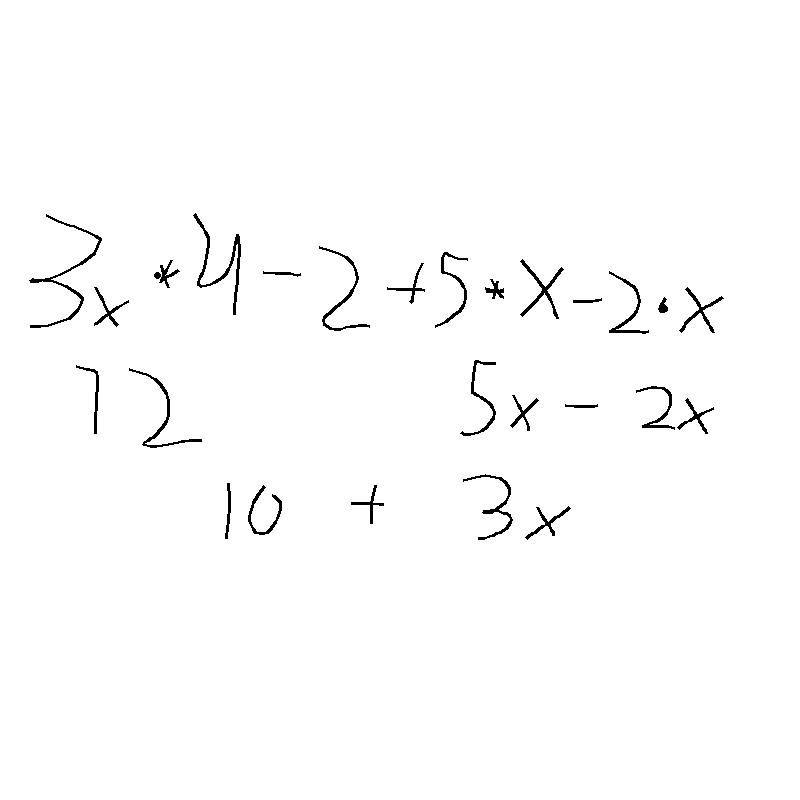 3x*4-2+5*x-2·x
12 5x-2x
10 + 3x